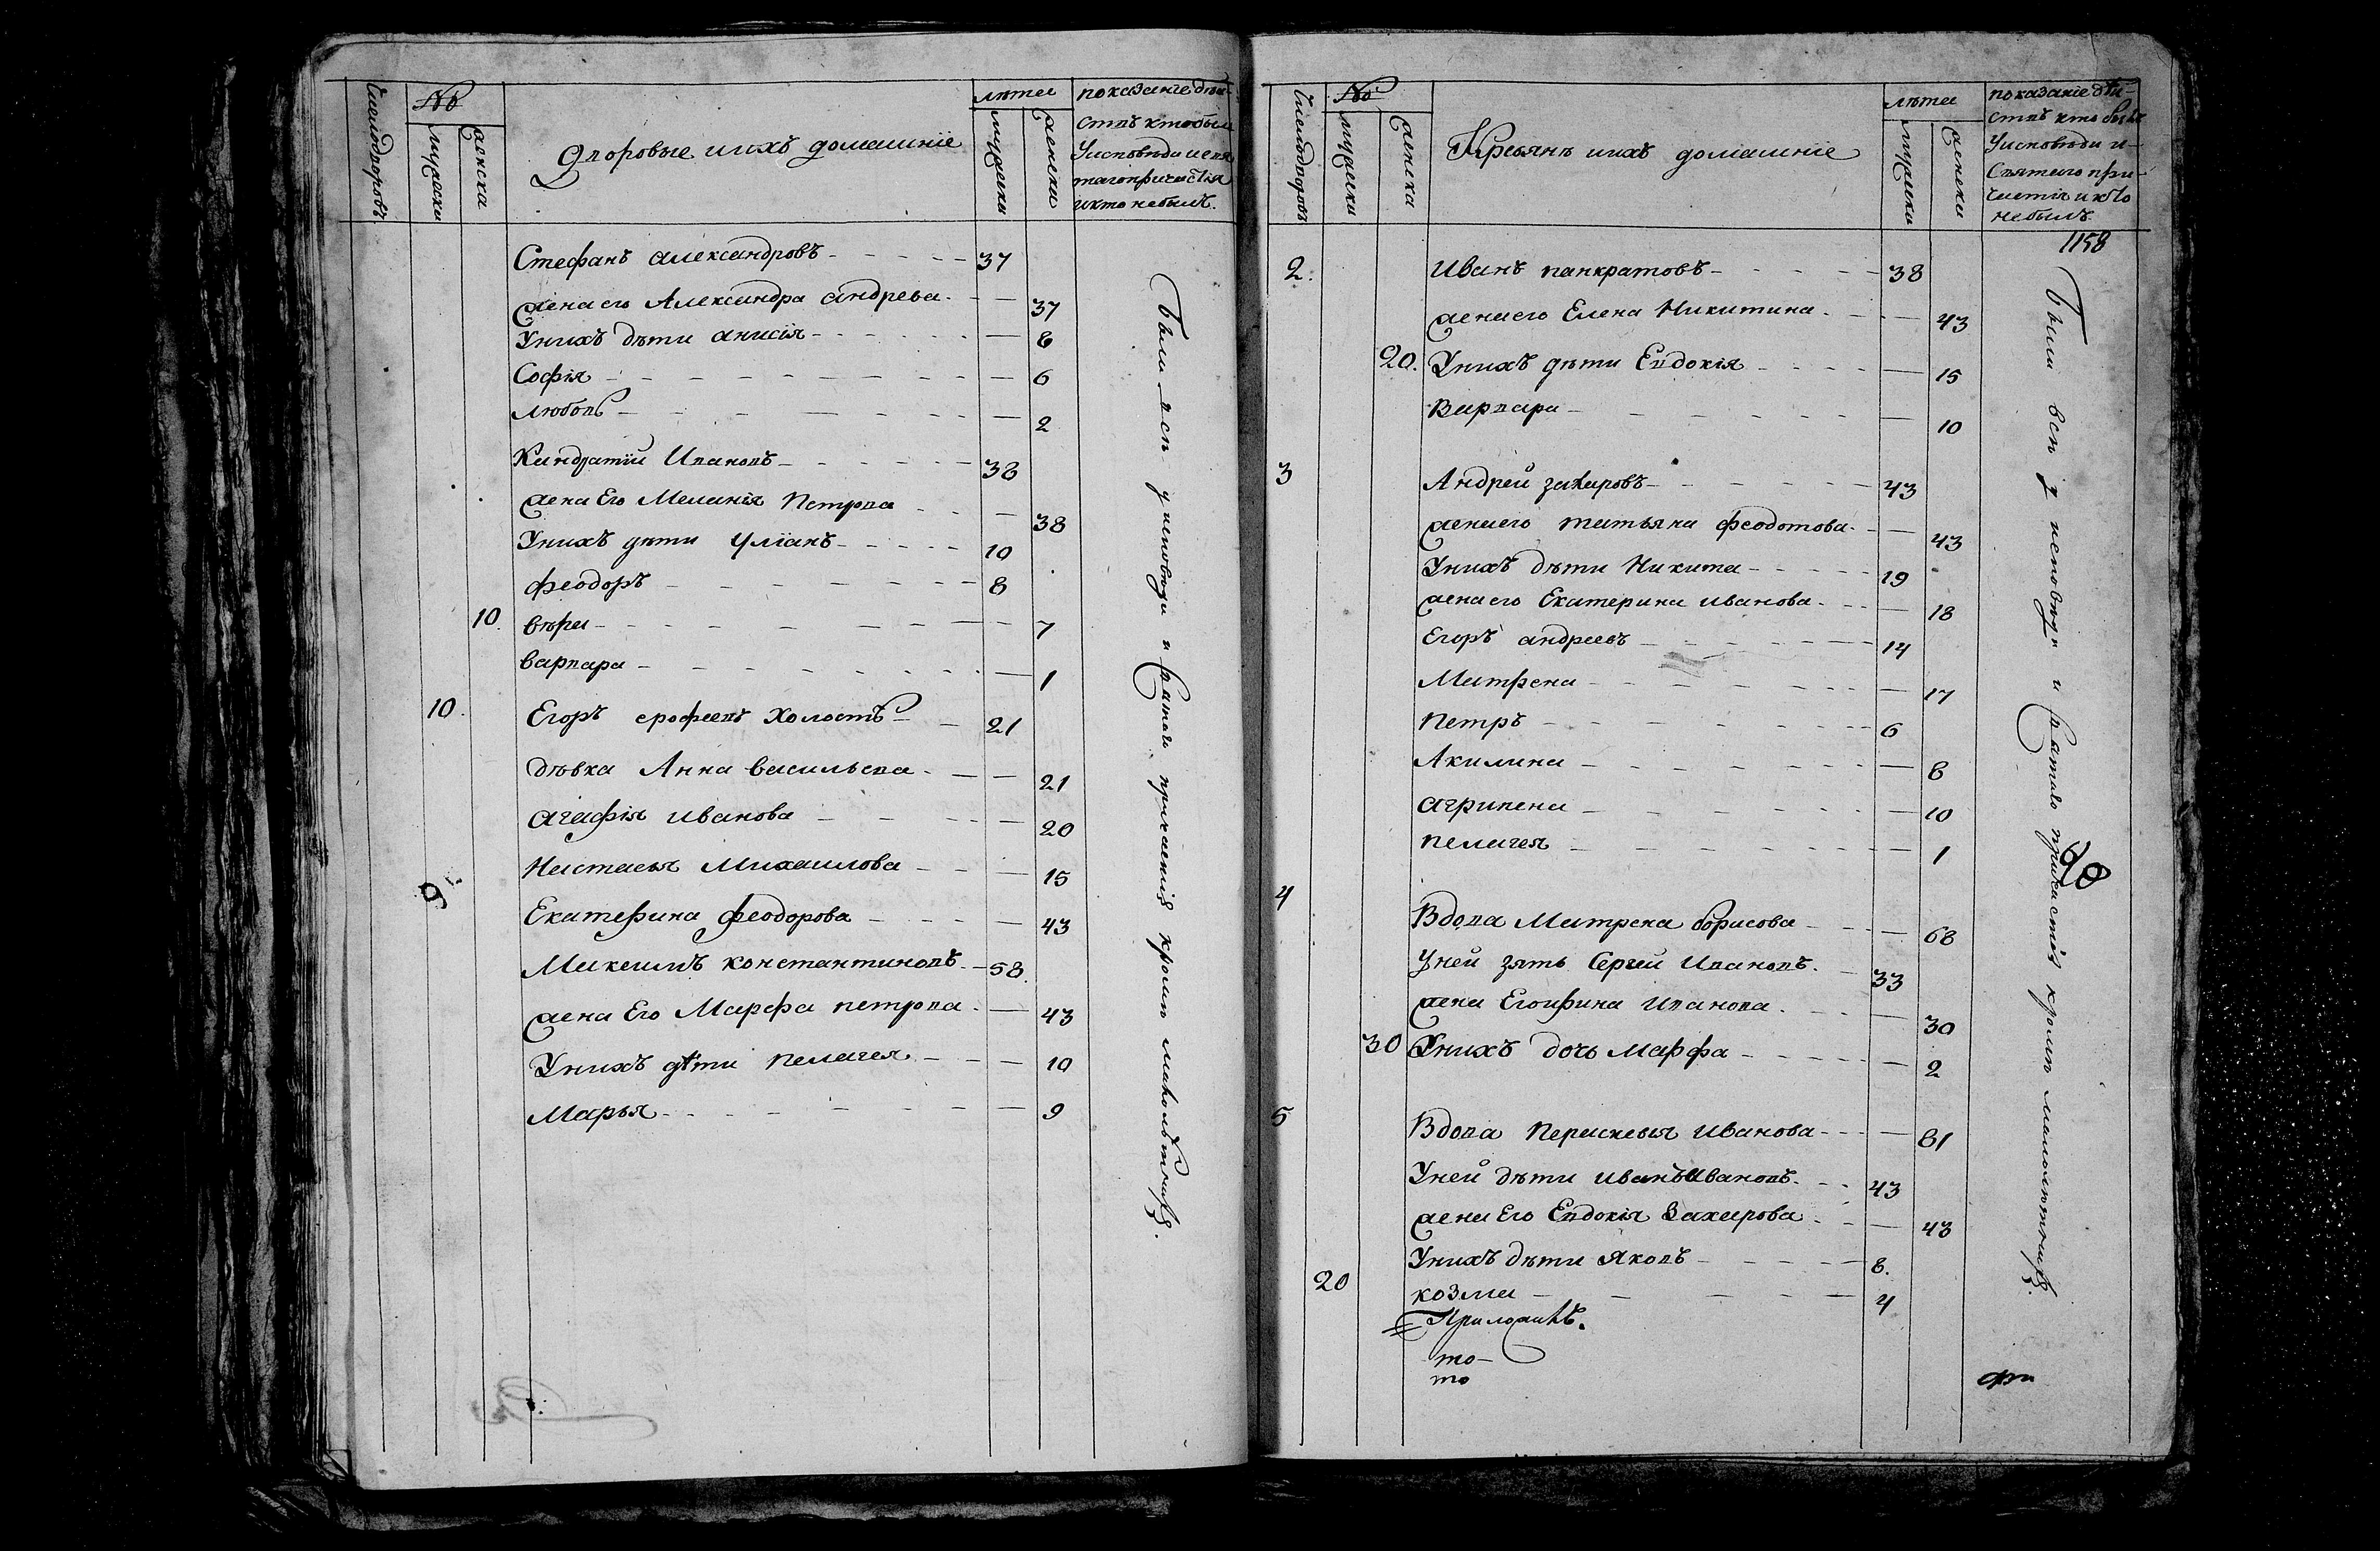 Число дворовъ
№
мужеска
женска
Дворовые и ихъ домашние
лѣта
мужеска
женска
показание дѣи-
ствъ кто былъ
У исповѣди и свя
таго причастия
и кто не былъ.
Стефанъ александровъ 37
жена его Александра андрева 37
У нихъ дѣти анисія 8
Софія 6
любовь 2
Киндратии Ивановъ 38
жена Его Меланія Петрова 38
У нихъ дѣти Улианъ 10
феодоръ 8
10. вѣра 7
варвара 1
10. Егоръ ерофеевъ холостъ 21
дѣвка Анна васильева 21
агафія иванова 20
Настасья Михаилова 15
9
Екатерина феодорова 43
Михаилъ константиновъ 58.
жена Его Марфа петрова 43
У нихъ дѣти пелагея 10
Марья 9
Были всѣ у исповѣди и святаго причастия кромѣ малолѣтныхъ.
Число дворовъ
№
мужеска
женска
Кресьянѣ и ихъ домашние
лѣта
мужеска
женска
показание дѣи-
ствъ кто былъ
У исповѣди и
Святаго при-
частия и кто
не былъ.
1158
2. Иванъ панкратовъ 38
жена его Елена Никитина 43
20. У нихъ дѣти Евдокія 15
Варвара 10
3 Андрей захаровъ 43
жена его татьяна феодотова 43
У нихъ дѣти Никита 19
жена его Екатерина иванова 18
Егоръ андреевъ 14
Матрена 17
Петръ 6
Акилина 8
агрипена 10
пелагея 1
4
Вдова Матрена борисова 68
У ней зять Сергеи Ивановъ 33
жена Его ирина Иванова 30
30 У нихъ дочь Марфа 2
5
Вдова Пераскевья Иванова 81
У ней дѣти иванъ Ивановъ 43
жена Его Евдокія Захарова 43
У нихъ дѣти Яковъ 8.
20 козма 4
то
то
Были всѣ у исповѣди и святаго причастія кромѣ малолѣтныхъ.
90